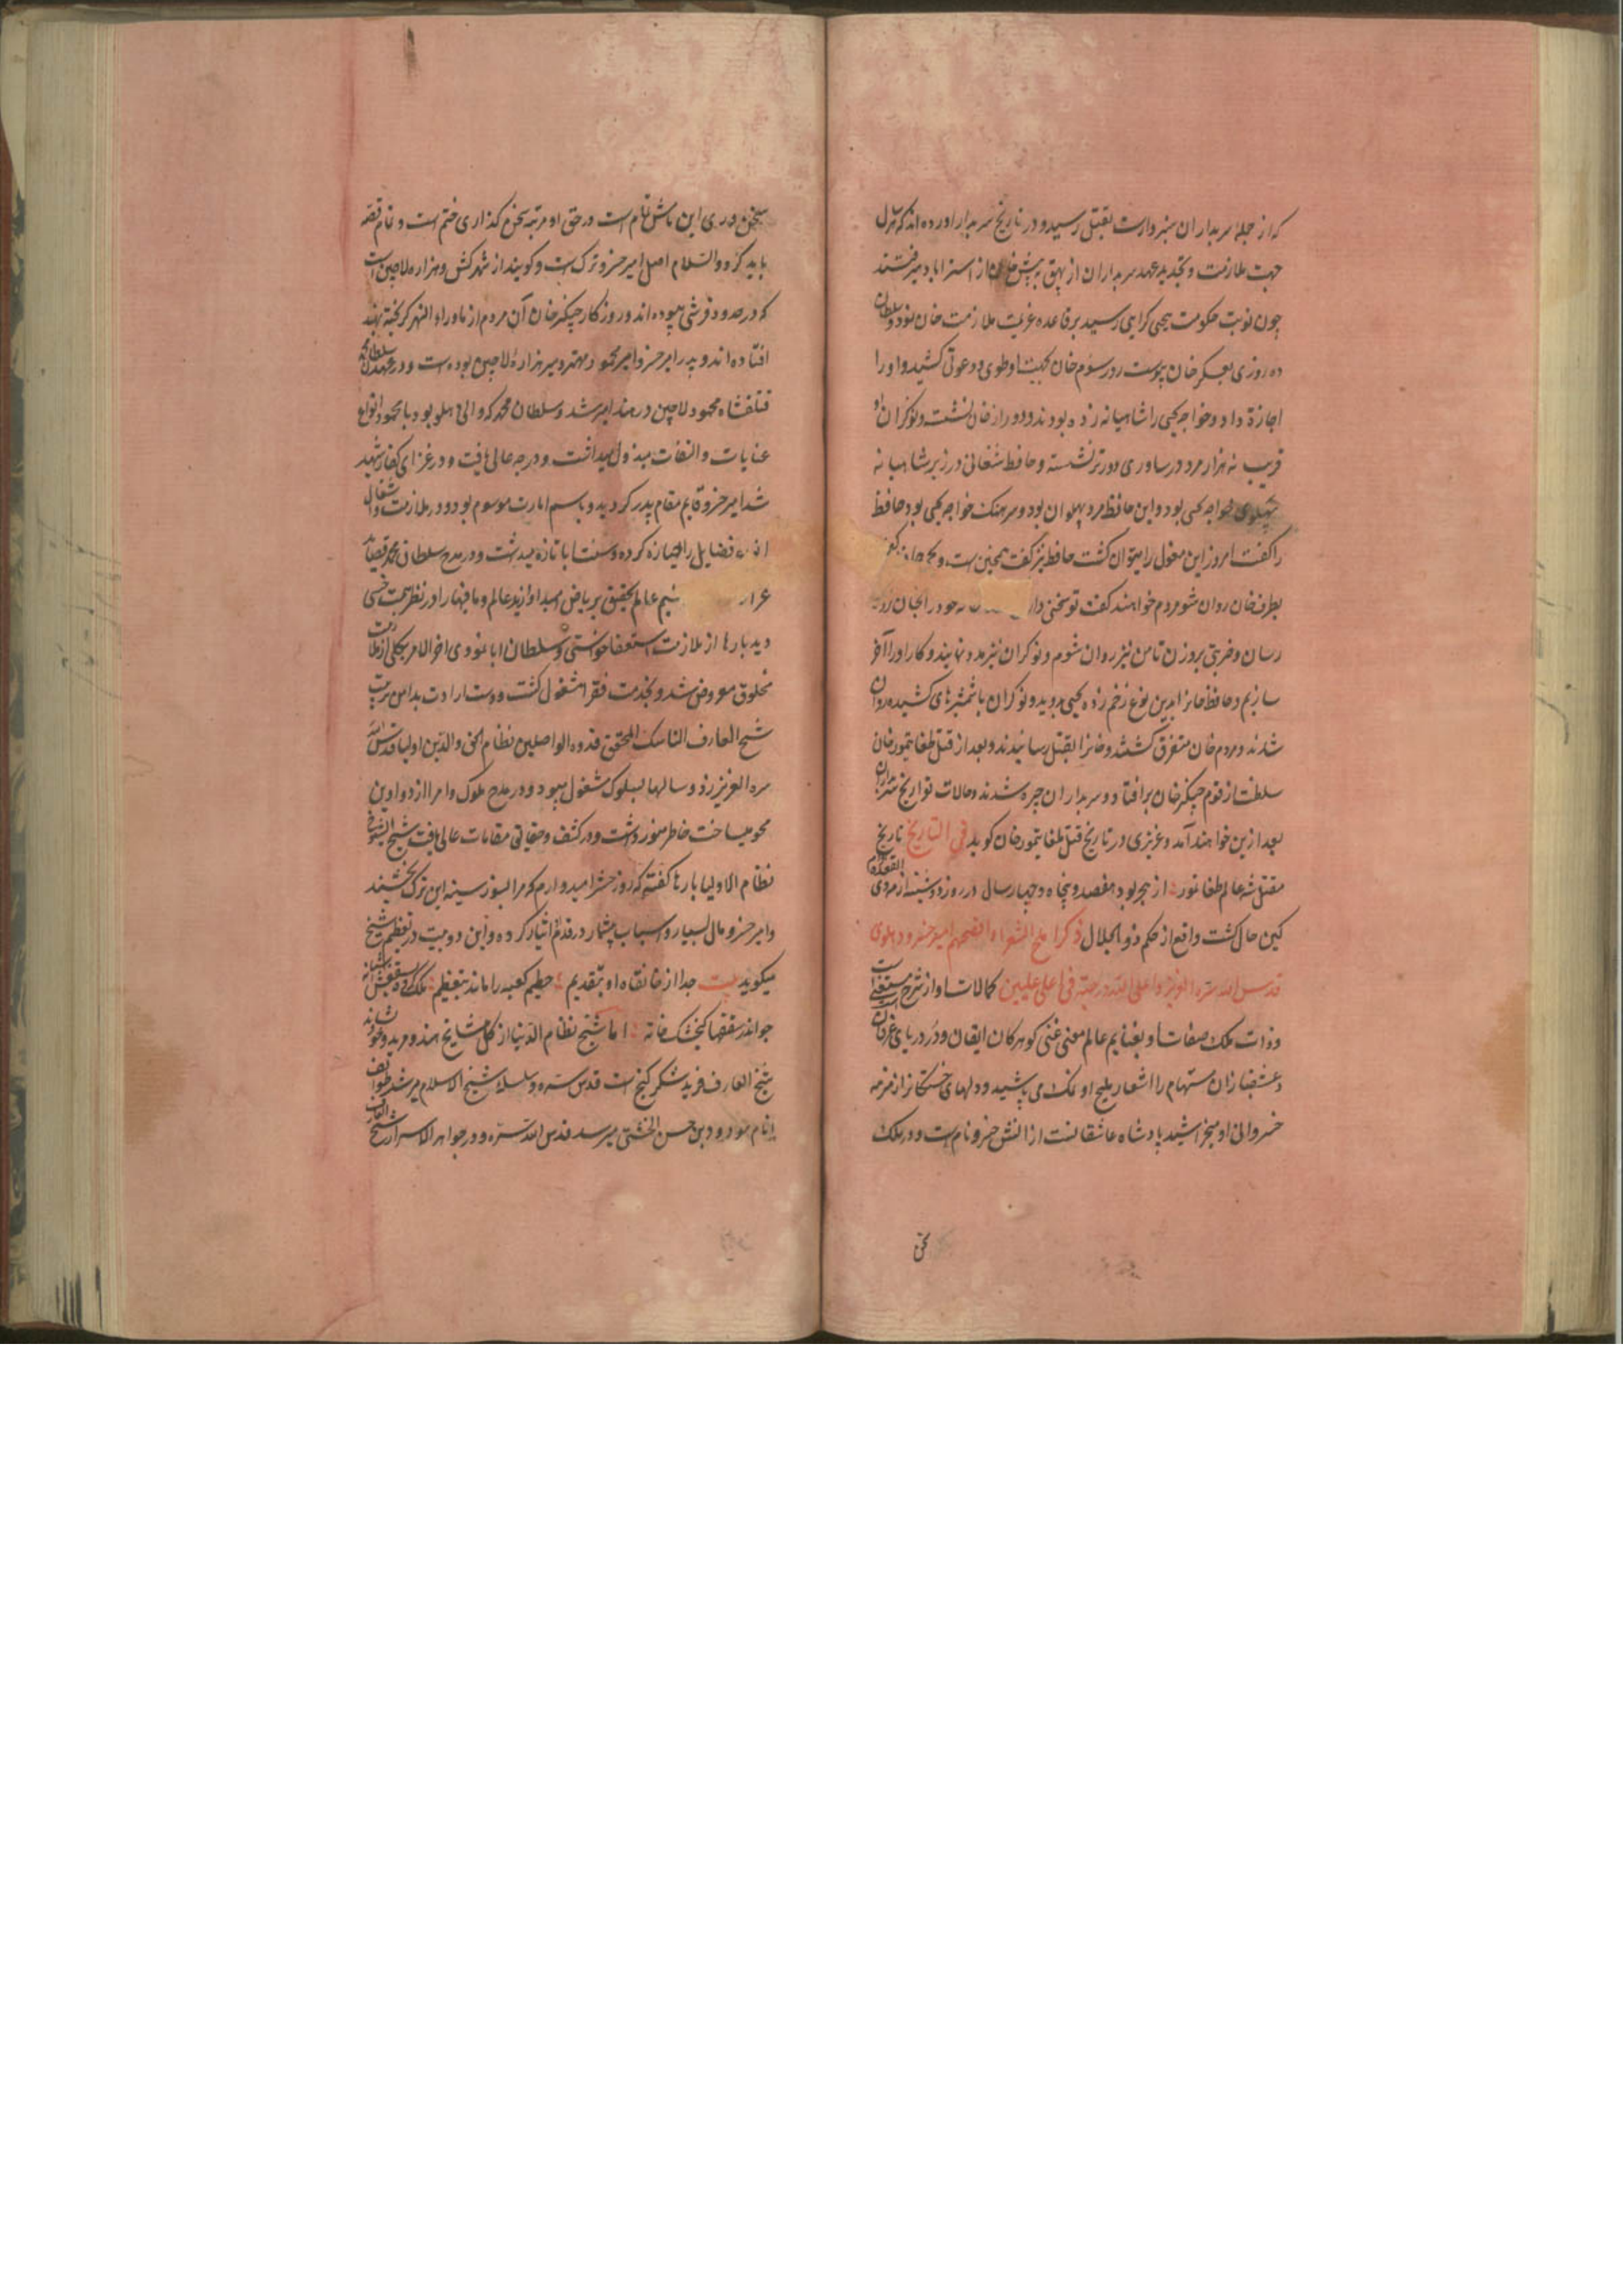 که از جمله سربداران سبزوارست بقتل رسید و در تاریخ سربدار اورده اند که هر سال
جهت ملازمت و تجدید عهد سربداران از بیهق پیش خان از استراباد میرفتند
چون نوبت حکومت بیحیی کرابی رسید بر قاعده عزیمت ملازمت خان نمود و سلطان
ده روزی بعسکر خان پیوست و در رسوم خان بجهت او طوی و دعوتی کشید و او را
اجازة داد و خواجه یحیی را شامیانه زده بودند و دور از خان نشست و نوکران او
قریب سه هزار مرد در ساوری دورتر نشسته و حافظ شغانی در زیر شامیانه
بپهلوی خواجه یحیی بود و این حافظ مرد پهلوان بود و سرهنک خواجه یحیی بود حافظ
را کفت امروز این مغول را میتوان کشت حافظ نیز کفت همچنین است و
بطرف خان روان شو مردم خواهند کفت تو سخنی داری خود را بخان
رسان و ضربتی برو زن تا من نیز روان شوم و نوکران نیز مدد نمایند و کار او را آخر
سازیم و حافظ خانرا بدین نوع زخم زد و یحیی دوید و نوکران با شمشیرهای کشیده روان
شدند و مردم خان متفرق کشتند و خانرا بقتل رسانیدند و بعد از قتل طغا تیمور خان
سلطنت از قوم چنکیز خان برافتاد و سربداران چیره شدند و حالات تواریخ سربداران
بعد ازین خواهند آمد و عزیزی در تاریخ قتل طغا تیمور خان کوید فی التاریخ تاریخ
مقتل شه عالم طغا تمور از هجر بود هفصد و پنجاه و چهار سال در روز دوشنبه از مه ذی القعده
کین حال کشت واقع از حکم ذوالجلال ذکر املح الشعراء الفصحا امیر خسرو دهلوی
قدس الله سره العزیز و اعلی الله درجته فی اعلی علیین کمالات او از شرح مستغنی است
و ذات ملک صفات او بغنایم عالم معنی غنی کوهر کان ایقان و در دریای عرفان است
و عشقبازان مستهام را اشعار ملیح او نمک می پاشید و دلهای خستکانرا زمزمه
خسروانی او میخراشید پادشاه عاشقانست ازانش خسرو نام است و در ملک
سخن
سخن وری این نامش تمام است در حق او مرتبه سخن کذاری ختم است و تمام قصه
باید کرد و السلام اصل امیر خسرو ترک است و کویند از شهر کش و هزاره لاچین است
که در حدود قرشی میبوده اند و روزکار چنکیز خان آن مردم از ماوراء النهر کریخته بهند
افتاده اند و پدر امیر خسرو امیر محمود مهتر و میر هزاره لاچین بوده است و در عهد سلطان محمد
تغلقشاه محمود لاچین در هند امیر شد و سلطان محمد که والی دهلی بود با محمود انواع
عنایات و التفات مبذول میداشت و درجه عالی یافت و در غزای کفار شهید
شد امیر خسرو قایم مقام پدر کردید و باسم امارت موسوم بود و در ملازمت و اشغال
فضایل را حیازه کرده و سنت ابا تازه میداشت و در مدح سلطان محمد قصاید
غرا نسیم عالم تحقیق بر ریاض امید او وزید عالم و ما فیها را در نظر همت خسی
دید بارها از ملازمت استعفا خواستی و سلطان ابا نمودی اخر الامر بکلی از ملازمت
مخلوق معروض شد و بخدمت فقرا مشغول کشت و دست ارادت بدامن تربیت
شیخ العارف الناسک المحقق قدوه الواصلین نظام الحق و الدین اولیا قدس الله
سره العزیز زد و سالها بسلوک مشغول میبود و در مدح ملوک و امرا از دواوین
محو میساخت خاطر منور داشت و در کشف و حقایق مقامات عالی یافت شیخ الشیوخ
نظام الاولیا بارها کفتی که روز حشر امیدوارم که مرا بسوز سینه این ترک بخشند
و امیر خسرو مال بسیار و اسباب بیشمار در قدم شیخ نثار کرده و این دو بیت در تعظیم شیخ
میکوید بیت جدا از خانقاه او بتقدیم حطیم کعبه را ماند بتعظیم ملک کرده بسقفش آشیانه
چو اندر سقفها کنجشک خانه اما شیخ نظام الدین از کمل مشایخ هند و مرید و خوشانه
شیخ العارف فرید شکر کنج است قدس سره و سلسله شیخ الاسلام مرشد طوایف
انام مودود بن حسن الچشتی میرسد قدس الله سره و در جواهر الاسرار شیخ العارف